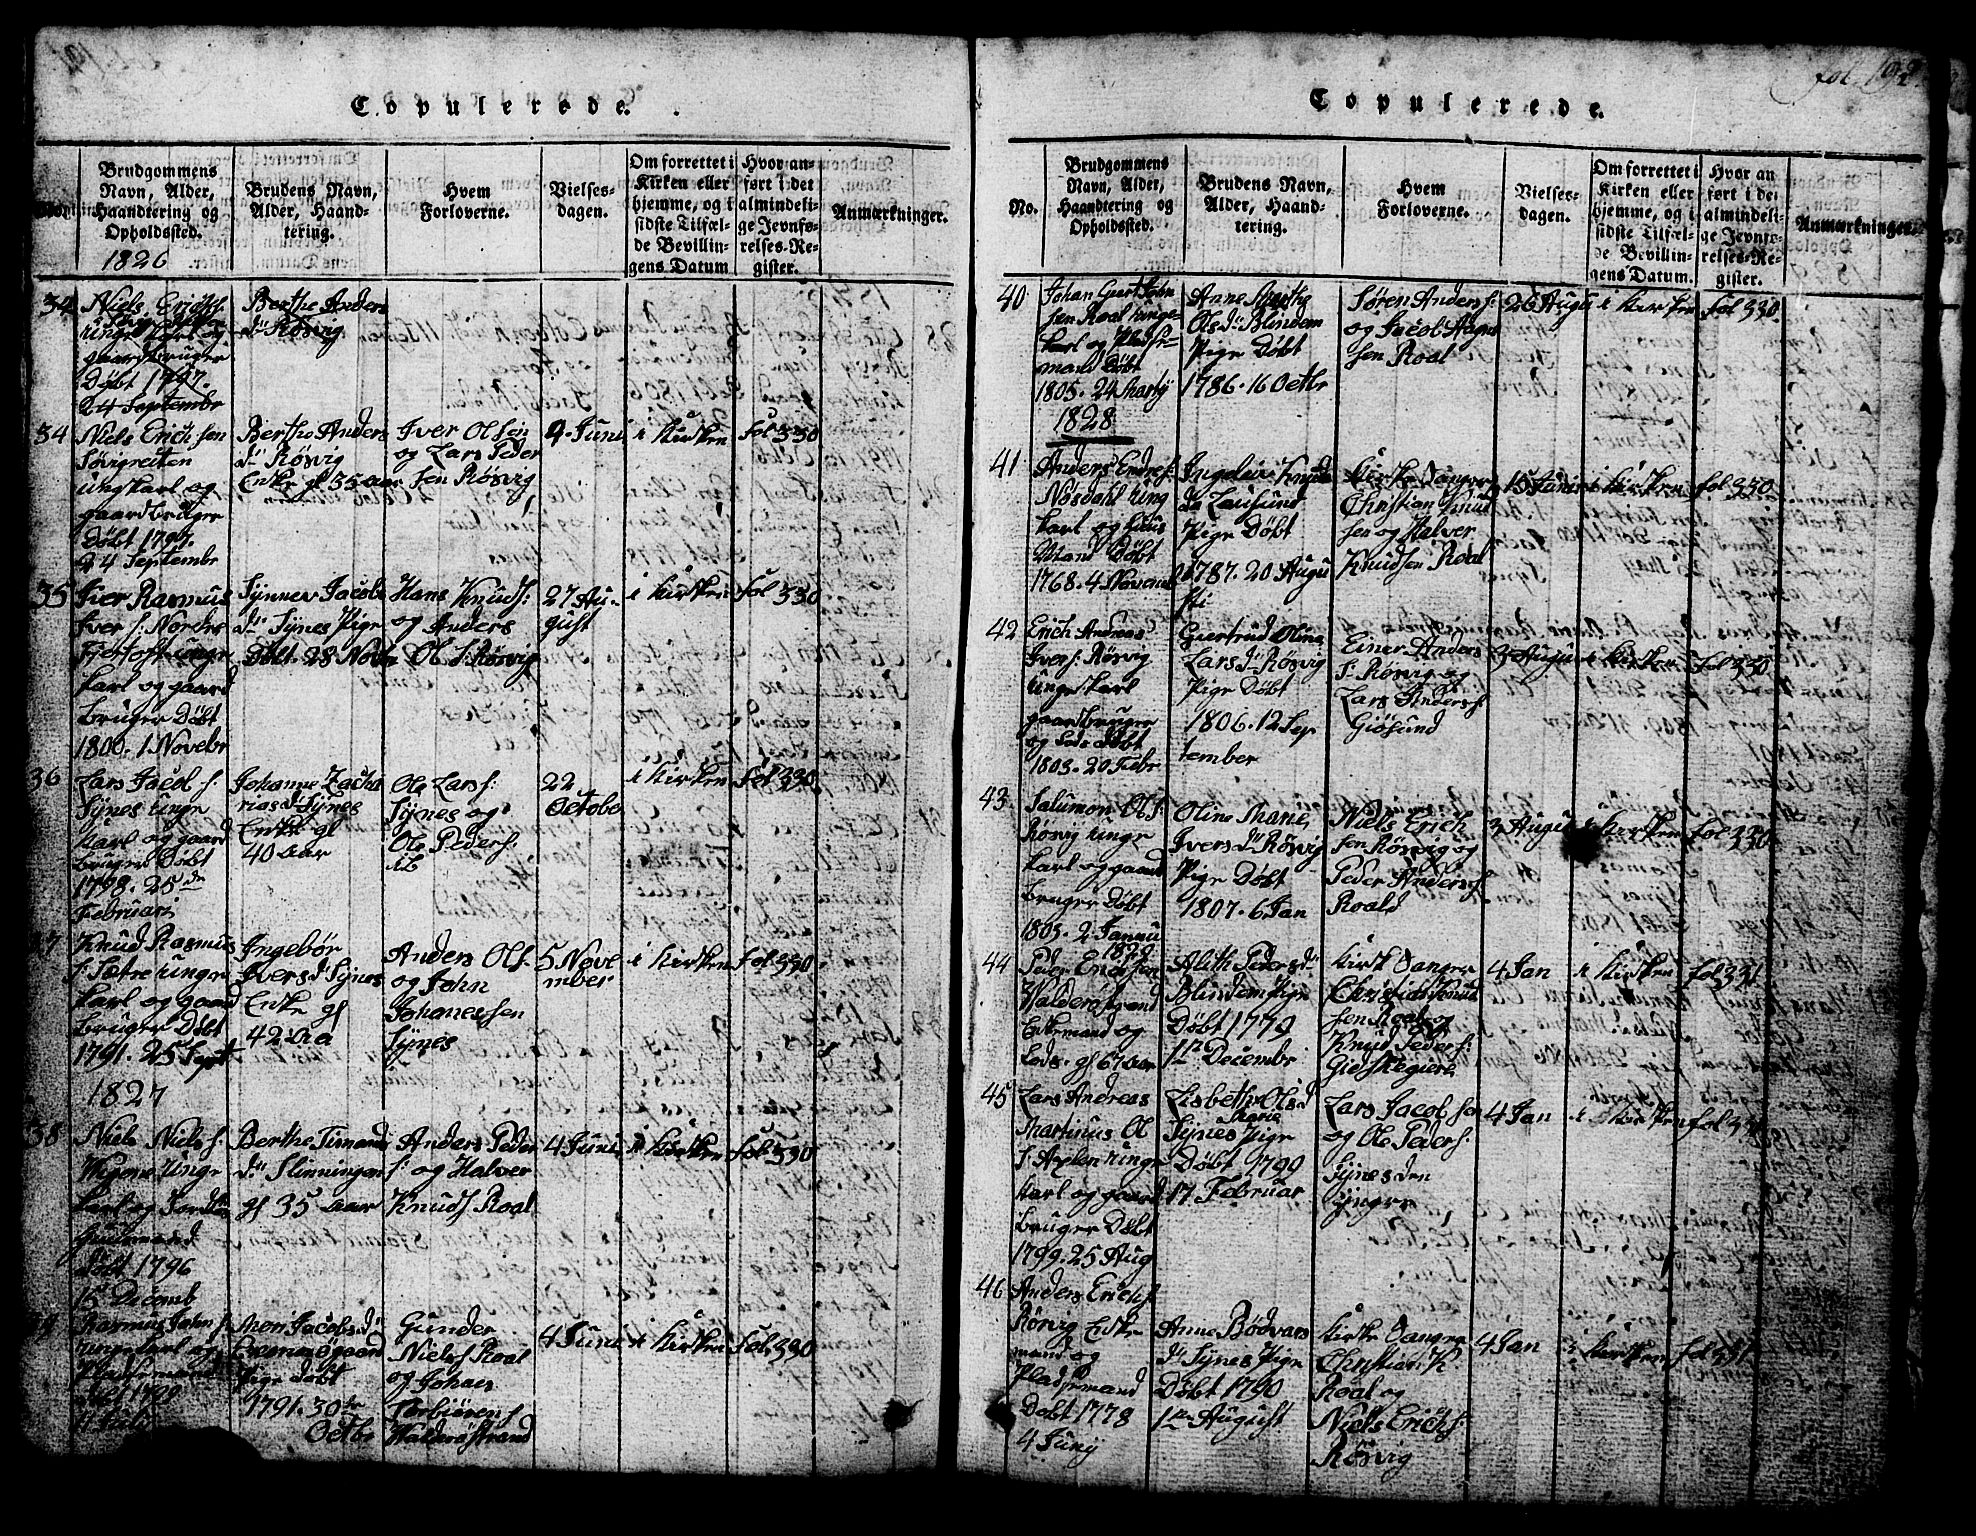 Copulerede.
Brudgommens
Navn, Alder,
Haandtering og
Opholdssted.
1826
Brudens Navn,
Alder, Haand-
tering.
Hvem
Forloverne.
Vielses-
dagen.
Om forrettet i
Kirken eller
hjemme, og i
sidste Tilfæl-
de Bevillin-
gens Datum
Hvor an-
ført i det
almindeli-
ge Jevnfø-
relses-Re-
gister.
Anmærkninger.
34
Niels
Ungekarl og
gaardbruger
Døbt 1797.
24 Septembr
Berthe Anders
dr Røsvig
34
Niels Erich sen
Søvigreiten
ungkarl og
gaardbruger
Døbt 1797.
24 Septembr
Berthe Anders
dr Røsvig
Enke gl 35 aar
Iver Olsen
og Lars Peder
sen Røsvig
4 Juni
i Kirken
fol 330
35
Iver Rasmus
Iver s: Nordre
Fjertoft unge
karl og gaard
bruger Døbt
1800. 1 Novebr
Synnev Jacobs
dr Synes Pige
Døbt. 28 Novbr
Hans Knuds:
og Anders
Ol s: Røsvig
27 Au-
gust
i Kirken
fol 330
36
Lars Jacob s:
Synes unge
karl og gaard
bruger Døbt
1798. 25de
Februari
Johanne Zacha
rias dr Synes
Enke gl
40 aar
Ole Lars s:
Synes og
Ole Peders:
ib
22
October
i Kirken
fol 330
37
Knud Rasmus
s: Sætre unge
karl og gaard
bruger Døbt
1791. 25 Sept
Ingebør
Ivers dr Synes
Enke gl
42 aa
Anders Ols
og John
Johanessen
Synes
5 Nove
mber
i Kirken
fol 330
1827
38
Niels Niels s:
unge
karl og
huusmand
Døbt 1796
15 Decemb
Berthe Timand
dr Slinningen
gl 35 aar
Anders Peder
s: og Halver
Knuds Roal
4 Juni
i Kirken
fol 330
39
Rasmus John s:
ungekarl og
Pladsemand
Døbt 1799
Jacobs dr
Pige Døbt
1791. 30te
Octbr
Gunder
Niels s Roal
og Johan
Torbiørens
Walderøstrand
4 Juni
i Kirken
fol 330
fol. 192
Copulerede.
No.
Brudgommens
Navn, Alder,
Haandtering og
Opholdsted.
Brudens Navn,
Alder, Haand-
tering.
Hvem
Forloverne.
Vielses-
dagen.
Om forrettet i
Kirken eller
hjemme, og i
sidste Tilfæl-
de Bevillin-
gens Datum.
Hvor an
ført i det
almindeli-
ge Jevnfø-
relses-Re-
gister.
Anmærkninger.
40
Johan Giert John
sen Roal unge-
karl og Pladse-
mand Døbt
1805. 24 Martij
Anne Marthe
Ols dr Blindem
Pige Døbt
1786. 16 Octbr
Søren Anders s:
og Jacob Aagus
sen Roal
26 Augu
i Kirken
fol 330.
1828
41
Anders Endre s:
Nøsdahl ung
karl og huus
Mand Døbt
1768. 4 Novemb
Ingeleiv Knuds
dr Lausund
Pige Døbt
1787. 20 Augu
sti
Kirke Sanger
Christian Knud
sen og Halver
Knudsen Roal
15 Juni
i Kirken
fol 330
42
Erich Andreas
Iver s: Røsvig
Ungekarl
gaardbruger
og Leds. Døbt
1803. 20 Febr
Giertrud Oline
Lars dr Røsvig
Pige Døbt
1806. 12 Sep
tember
Einer Anders
s: Røsvig og
Lars Anders s:
Giøsund
3 Augu
i Kirken
fol 330
43
Salumon Ol s:
Røsvig unge
karl og gaard
bruger Døbt
1805. 2 Jannu
Oline Marie
Ivers dr Røsvig
Pige Døbt
1807. 6 Jan
Niels Erich
sen Røsvig og
Peder Anders s:
Roald
3 Augu
i Kirken
fol 330
1829
44
Peder Erichsen
Walderøstrand
Enkemand og
Leds. gl 67 aar
Alith Peders dr
Blindem Pige
Døbt 1779
1te Decembr
Kirke Sanger
Christian Knud
sen Roal og
Knud Peder s:
Gidskegiere
4 Jan
i Kirken
fol 331
45
Lars Andreas
Martinus Ol
s: Axlen unge
karl og gaard
bruger Døbt
1799. 25 Aug
Lisbeth Ols d
Marie
Synes Pige
Døbt 1799
17 Februar
Lars Jacobsen
og Ole Peder s:
Synes den
yngre
4 Jan
i Kirken
fol 331
46
Anders Erich s:
Rørvig Enke
mand og
Pladsemand
Døbt 1778
4 Junij
Anne Bødvars
dr Synes Pige
Døbt 1790
1te August
Kirke Sanger
Christian K
Roal og
Niels Erich s:
Røsvig
4 Jan
i Kirken
fol 331